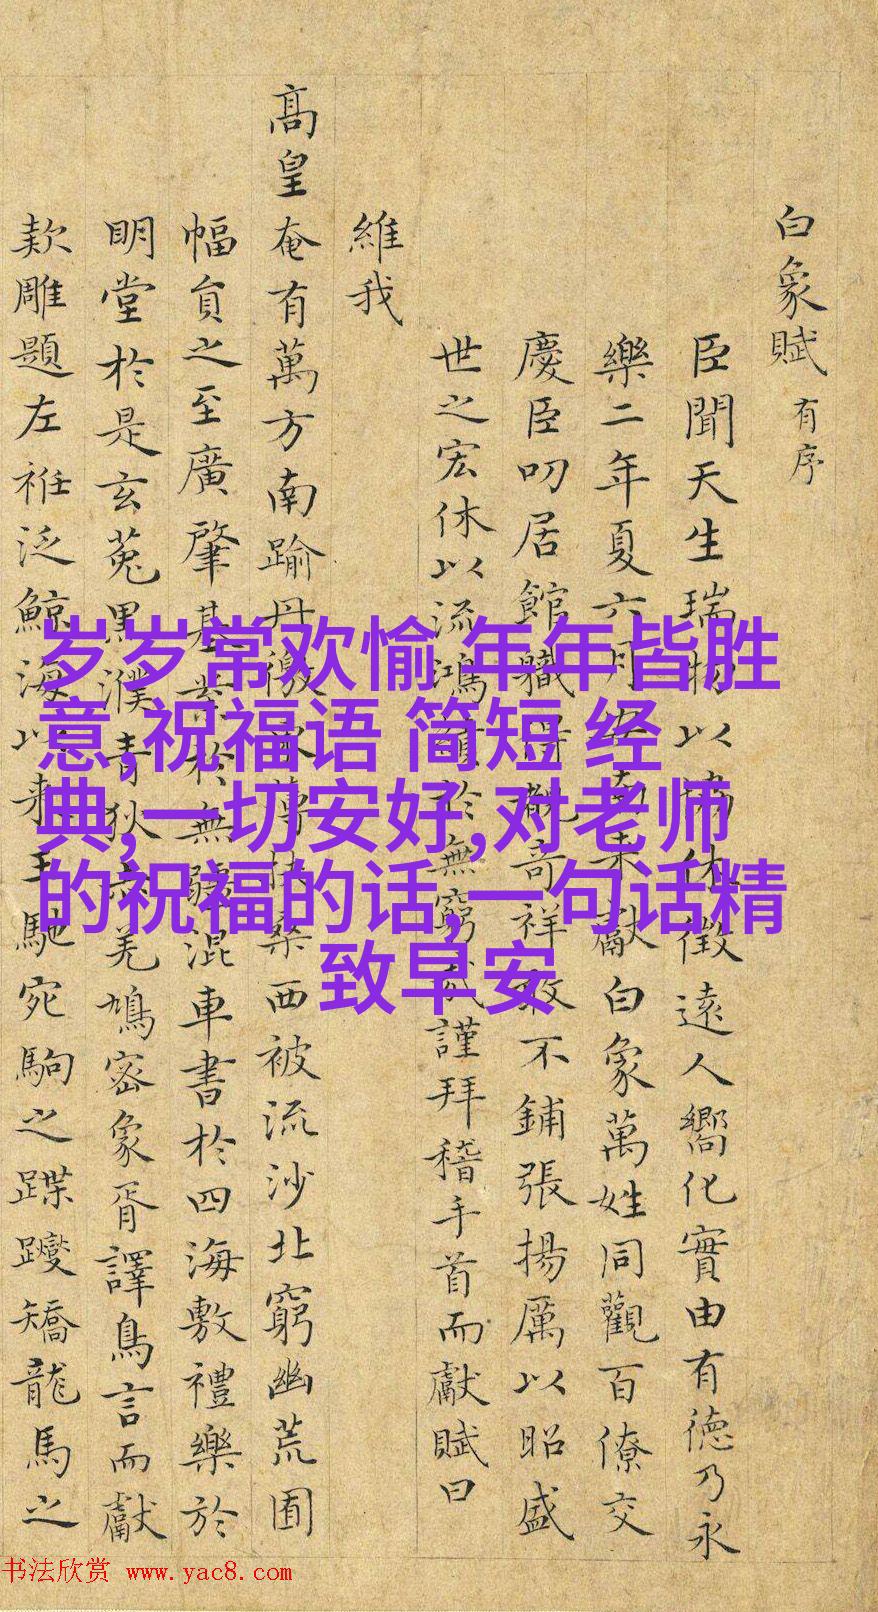 白象賦 有序
臣聞天生瑞物以休徵遠人嚮化實由有德乃永
樂二年夏六月安南来獻白象萬姓同觀百僚交
慶臣叨居館職得覩奇祥敢不鋪張揚厲以昭盛
世之宏休以流鴻於無窮哉謹拜稽手首而獻賦曰
維我
髙皇奄有萬方南踰丹徼東薄扶桑西被流沙北窮幽荒囿
幅員之至廣肇基業於無疆混車書於四海敷禮樂於
明堂於是玄菟黒濮青狄赤羌鳩宻象胥譯鳥言而獻
款雕題左袵泛鯨海以来王馳宛駒之蹀躞矯龍馬之
岁岁常欢愉,年年皆胜
意,祝福语 简短 经
典,一切安好,对老师
的祝福的话,一句话精
致早安
书法欣赏 www.yac8.com